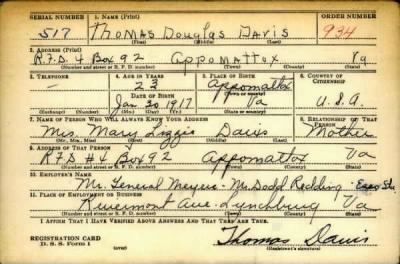 SERIAL NUMBER 1. NAME (Print) ORDER NUMBER
517 Thomas Douglas Davis 934
(First) (Middle) (Last)
2. ADDRESS (Print)
R.F.D. 4 Box 92 Appomattox Va
(Number and street or R. F. D. number) (Town) (County) (State)
3. TELEPHONE 4. AGE IN YEARS 5. PLACE OF BIRTH 6. COUNTRY OF CITIZENSHIP
— 23 Appomattox
DATE OF BIRTH (Town or county)
Jan 30 1917 Va U.S.A.
(Exchange) (Number) (Mo.) (Day) (Yr.) (State or country)
7. NAME OF PERSON WHO WILL ALWAYS KNOW YOUR ADDRESS 8. RELATIONSHIP OF THAT PERSON
Mrs. Mary Lizzie Davis Mother
(Mr., Mrs., Miss) (First) (Middle) (Last)
9. ADDRESS OF THAT PERSON
R.F.D #4 Box 92 Appomattox Va
(Number and street or R. F. D. number) (Town) (County) (State)
10. EMPLOYER'S NAME
Mr. General Meyers - Mr. Dodd Redding - Esso Sta
11. PLACE OF EMPLOYMENT OR BUSINESS
Rivermont Ave. Lynchburg Va
(Number and street or R. F. D. number) (Town) (County) (State)
I AFFIRM THAT I HAVE VERIFIED ABOVE ANSWERS AND THAT THEY ARE TRUE.
REGISTRATION CARD
D. S. S. Form 1 (over) Thomas Davis
(Registrant's signature)